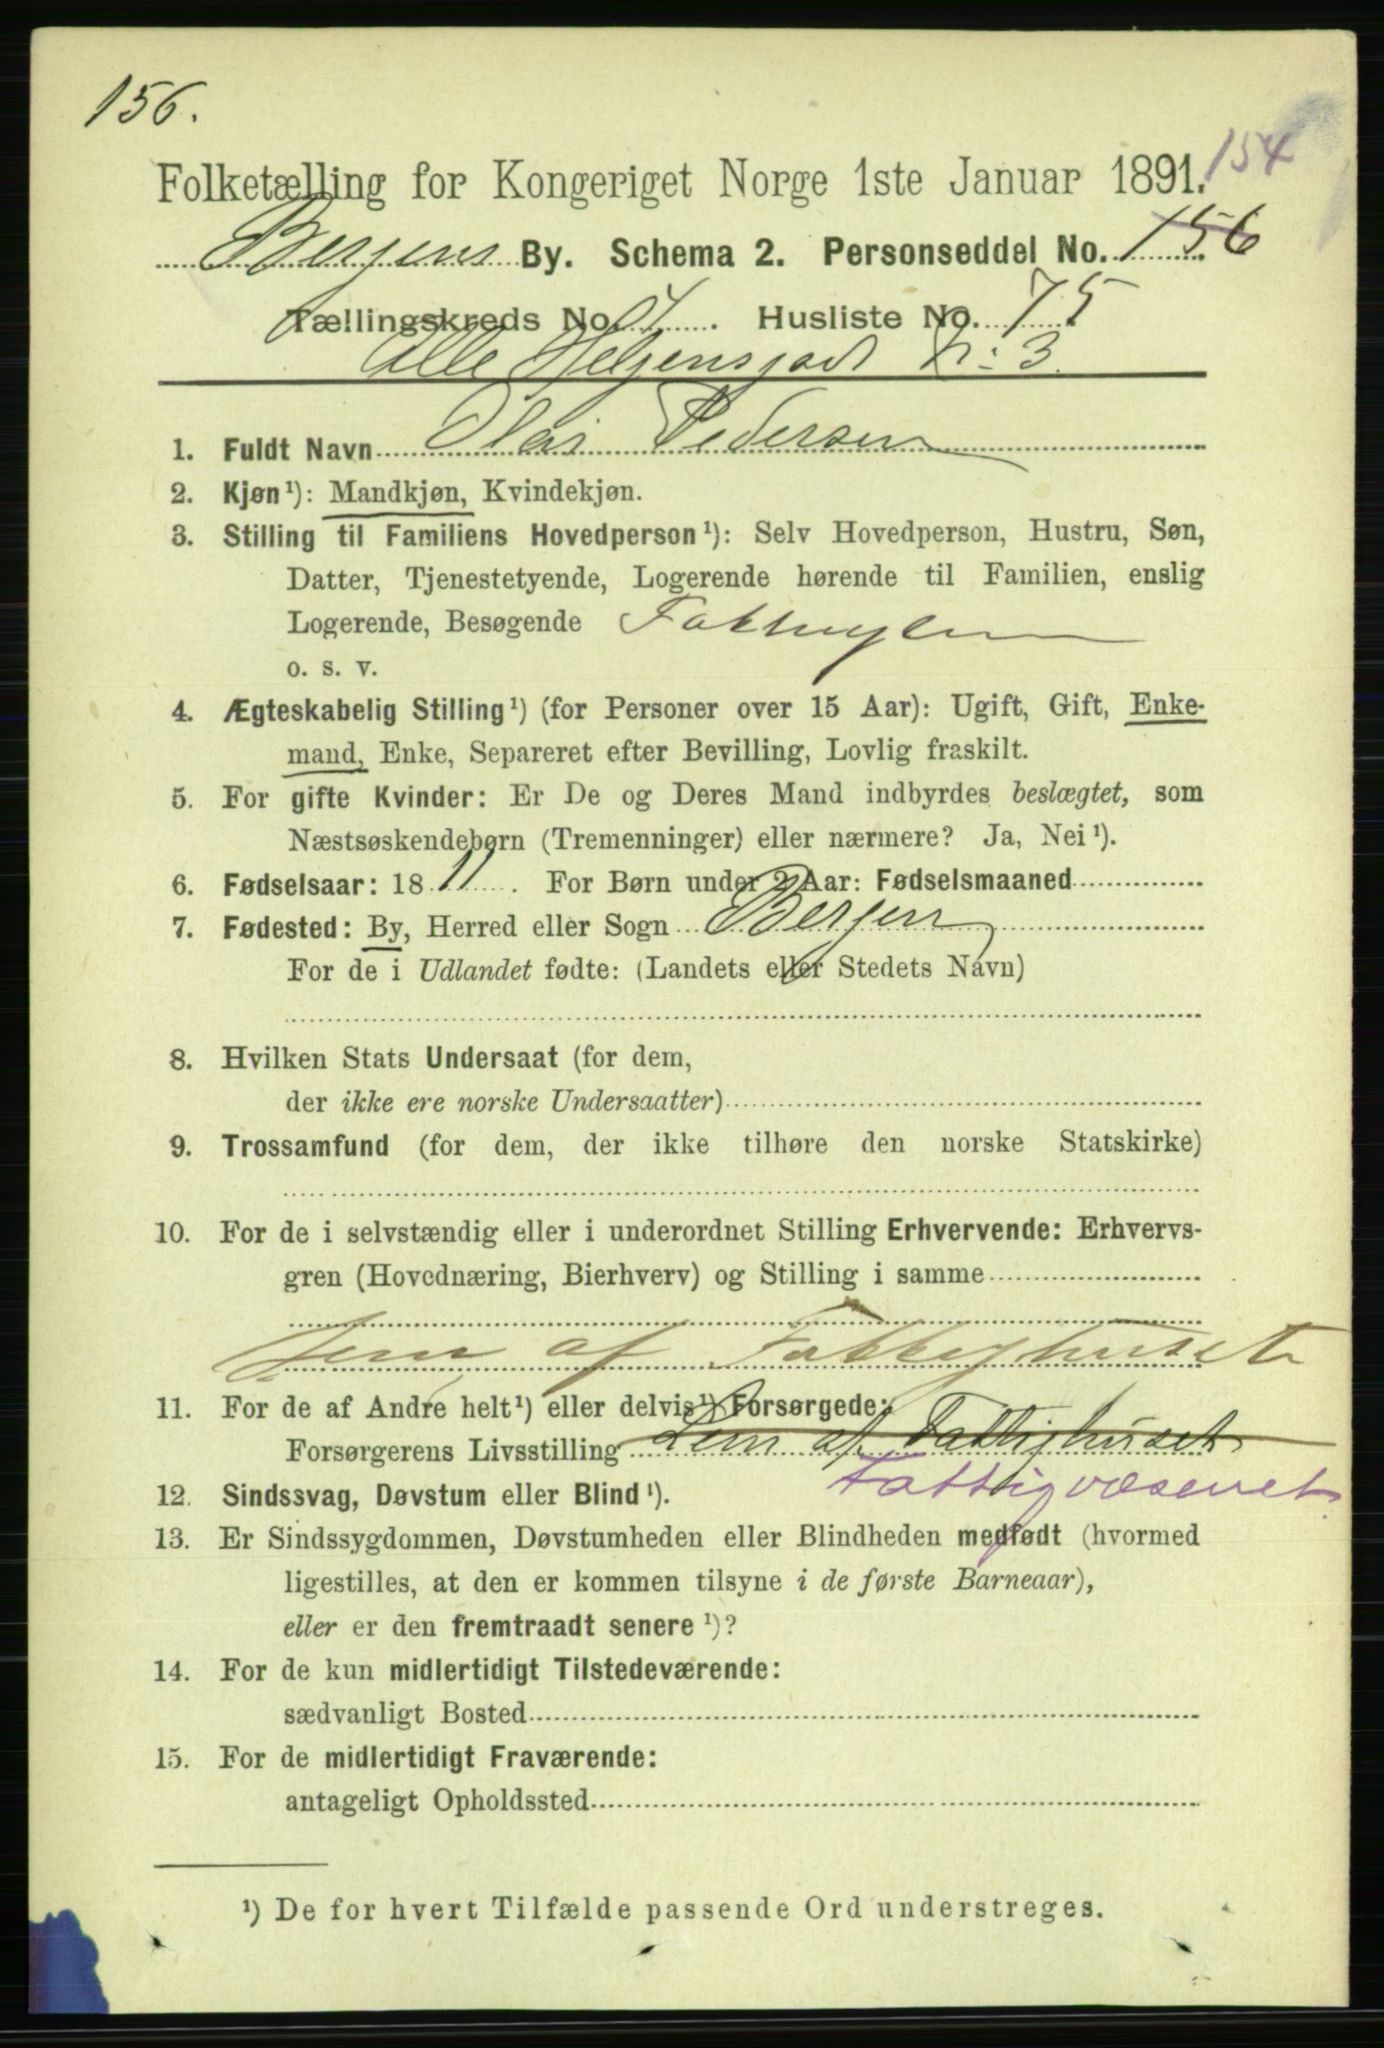 156.
Folketælling for Kongeriget Norge 1ste Januar 1891. 154
Bergens By. Schema 2. Personseddel No. 156
Tællingskreds No. 7. Husliste No. 75
Alle Helgensgad N: 3.
1. Fuldt Navn Olai Pedersen
2. Kjøn¹): Mandkjøn, Kvindekjøn.
3. Stilling til Familiens Hovedperson¹): Selv Hovedperson, Hustru, Søn,
Datter, Tjenestetyende, Logerende hørende til Familien, enslig
Logerende, Besøgende Fattiglem
o. s. v.
4. Ægteskabelig Stilling¹) (for Personer over 15 Aar): Ugift, Gift, Enke-
mand, Enke, Separeret efter Bevilling, Lovlig fraskilt.
5. For gifte Kvinder: Er De og Deres Mand indbyrdes beslægtet, som
Næstsøskendebørn (Tremenninger) eller nærmere? Ja, Nei¹).
6. Fødselsaar: 1811. For Børn under 2 Aar: Fødselsmaaned
7. Fødested: By, Herred eller Sogn Bergen
For de i Udlandet fødte: (Landets eller Stedets Navn)
8. Hvilken Stats Undersaat (for dem,
der ikke ere norske Undersaatter)
9. Trossamfund (for dem, der ikke tilhøre den norske Statskirke)
10. For de i selvstændig eller i underordnet Stilling Erhvervende: Erhvervs-
gren (Hovednæring, Bierhverv) og Stilling i samme
Lem af Fattighuset
11. For de af Andre helt¹) eller delvis¹) Forsørgede:
Forsørgerens Livsstilling Lem af Fattighuset
Fattigvæsenet
12. Sindssvag, Døvstum eller Blind¹).
13. Er Sindssygdommen, Døvstumheden eller Blindheden medfødt (hvormed
ligestilles, at den er kommen tilsyne i de første Barneaar),
eller er den fremtraadt senere¹)?
14. For de kun midlertidigt Tilstedeværende:
sædvanligt Bosted
15. For de midlertidigt Fraværende:
antageligt Opholdssted
¹) De for hvert Tilfælde passende Ord understreges.